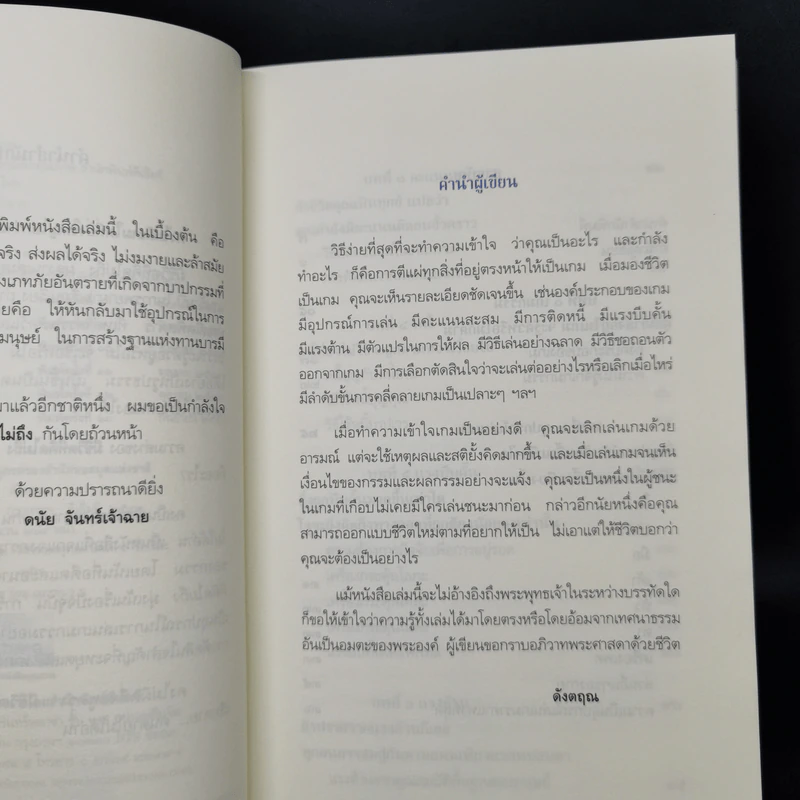 พิมพ์หนังสือเล่มนี้ ในเบื้องต้น คือ
จริง ส่งผลได้จริง ไม่งมงายและล้าสมัย
งเภทภัยอันตรายที่เกิดจากบาปกรรมที่
ยคือ ให้หันกลับมาใช้อุปกรณ์ในการ
มนุษย์ ในการสร้างฐานแห่งทานบารมี
มาแล้วอีกชาติหนึ่ง ผมขอเป็นกำลังใจ
ไม่ถึง กันโดยถ้วนหน้า
ด้วยความปรารถนาดียิ่ง
ดนัย จันทร์เจ้าฉาย
คำนำผู้เขียน
วิธีง่ายที่สุดที่จะทำความเข้าใจ ว่าคุณเป็นอะไร และกำลัง
ทำอะไร ก็คือการตีแผ่ทุกสิ่งที่อยู่ตรงหน้าให้เป็นเกม เมื่อมองชีวิต
เป็นเกม คุณจะเห็นรายละเอียดชัดเจนขึ้น เช่นองค์ประกอบของเกม
มีอุปกรณ์การเล่น มีคะแนนสะสม มีการติดหนี้ มีแรงบีบคั้น
มีแรงต้าน มีตัวแปรในการให้ผล มีวิธีเล่นอย่างฉลาด มีวิธีชอถอนตัว
ออกจากเกม มีการเลือกตัดสินใจว่าจะเล่นต่ออย่างไรหรือเลิกเมื่อไหร่
มีลำดับขั้นการคลี่คลายเกมเป็นเปลาะๆ ฯลฯ
เมื่อทำความเข้าใจเกมเป็นอย่างดี คุณจะเลิกเล่นเกมด้วย
อารมณ์ แต่จะใช้เหตุผลและสติยั้งคิดมากขึ้น และเมื่อเล่นเกมจนเห็น
เงื่อนไขของกรรมและผลกรรมอย่างจะแจ้ง คุณจะเป็นหนึ่งในผู้ชนะ
ในเกมที่เกือบไม่เคยมีใครเล่นชนะมาก่อน กล่าวอีกนัยหนึ่งคือคุณ
สามารถออกแบบชีวิตใหม่ตามที่อยากให้เป็น ไม่เอาแต่ให้ชีวิตบอกว่า
คุณจะต้องเป็นอย่างไร
แม้หนังสือเล่มนี้จะไม่อ้างอิงถึงพระพุทธเจ้าในระหว่างบรรทัดใด
ก็ขอให้เข้าใจว่าความรู้ทั้งเล่มได้มาโดยตรงหรือโดยอ้อมจากเทศนาธรรม
อันเป็นอมตะของพระองค์ ผู้เขียนขอกราบอภิวาทพระศาสดาด้วยชีวิต
ดังตฤณ